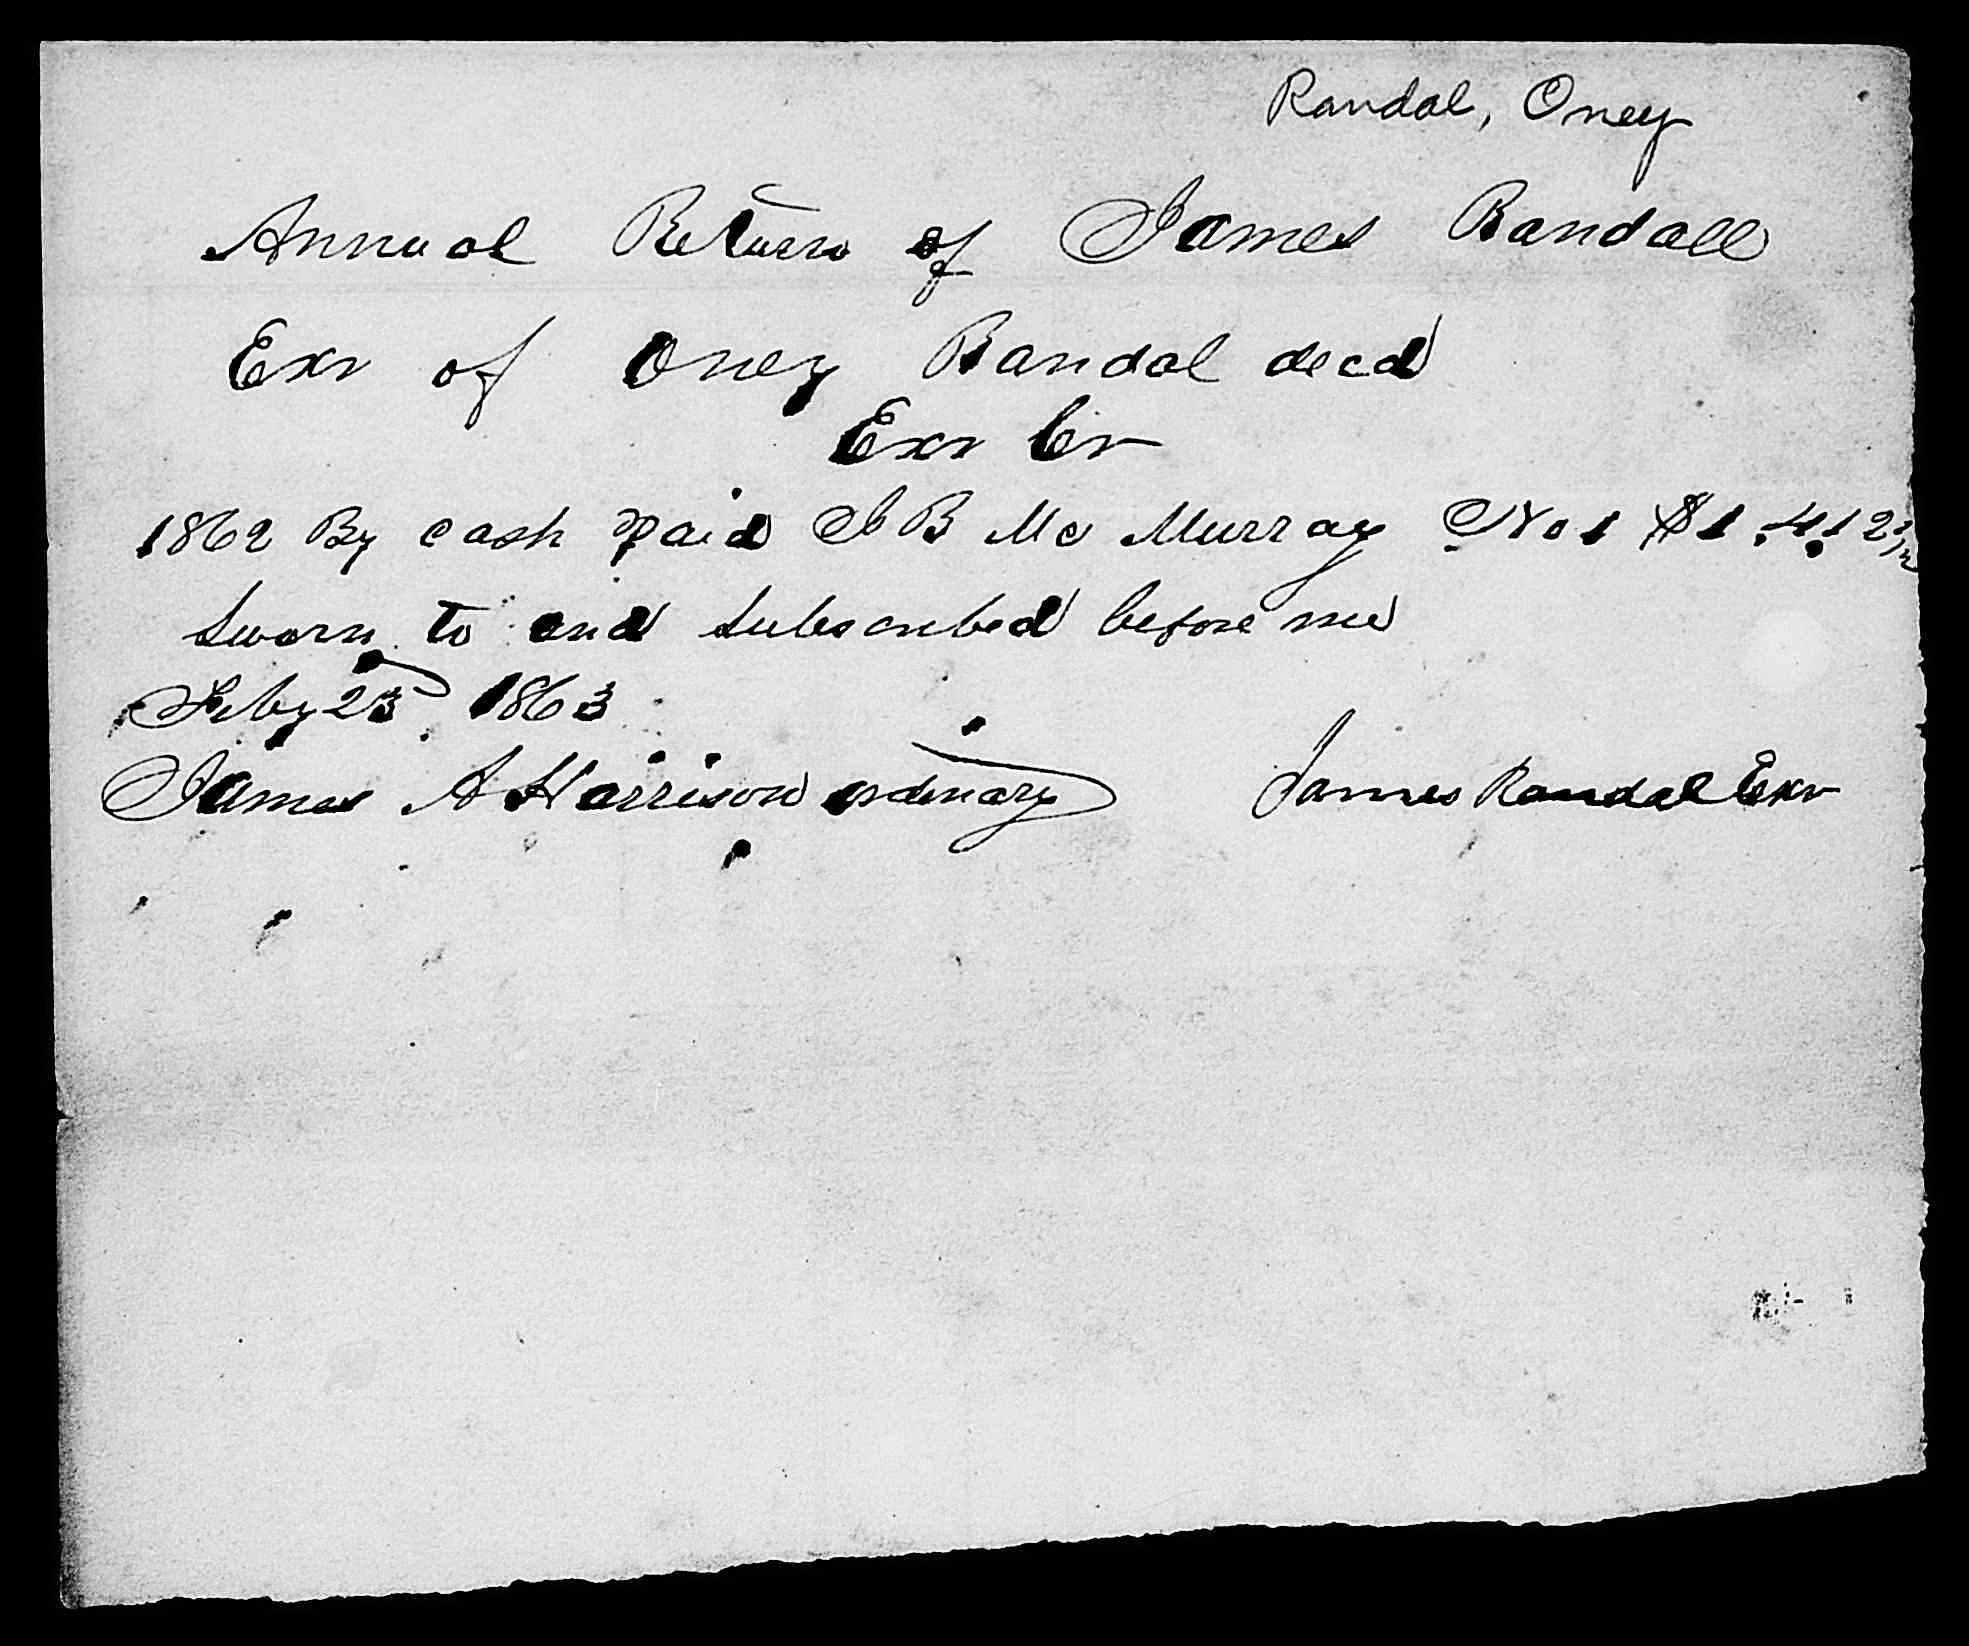 Randal, Oney
Annual Return of James Randall
Exr of Oney Randal decd
Exr Cr
1862 By cash paid J B Mc Murray No 1 $1.41 2½
Sworn to and Subscribed before me
Feby 23 1863
James A Harrison ordinary James Randal Exr